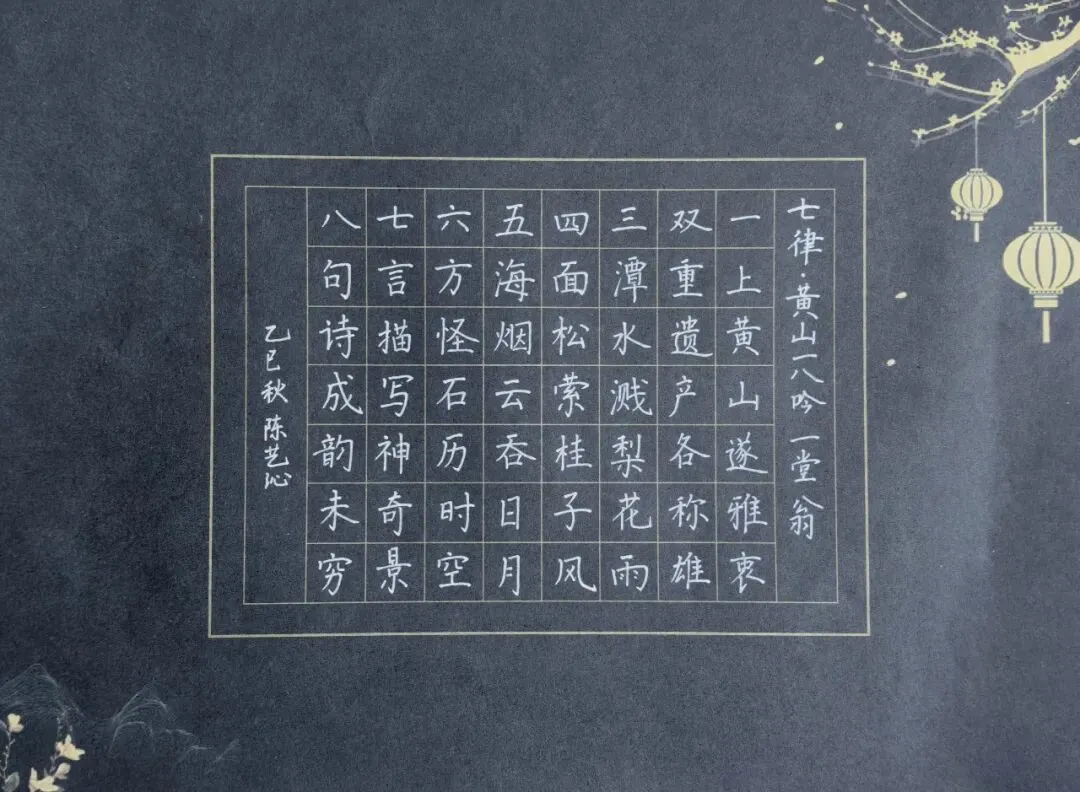 七律·黄山一八吟 一堂翁
一上黄山遂雅衷
双重遗产各称雄
三潭水溅梨花雨
四面松萦桂子风
五海烟云吞日月
六方怪石历时空
七言描写神奇景
八句诗成韵未穷
乙巳秋陈艺沁